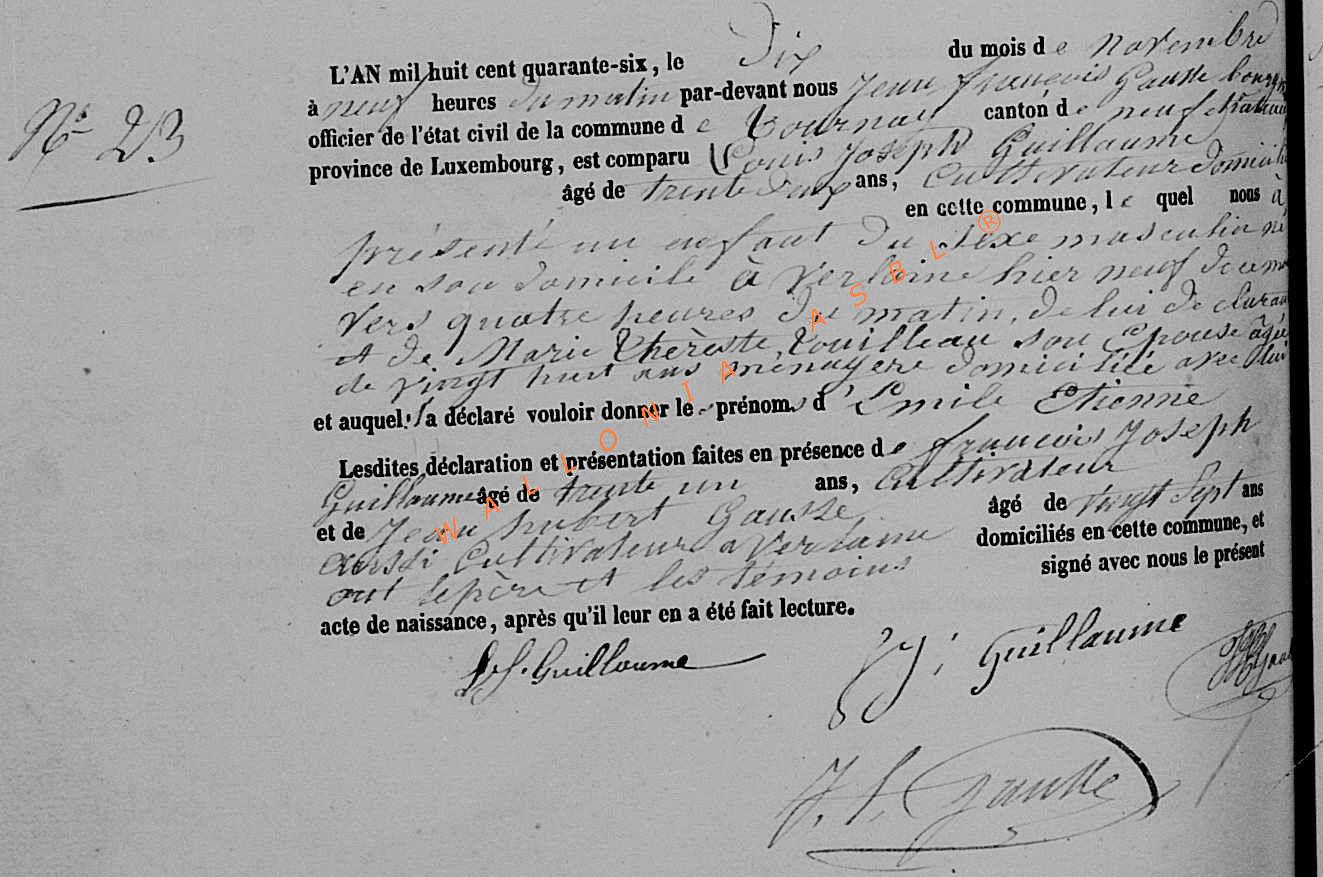 N° 23
L'AN mil huit cent quarante-six, le Dix du mois de novembre
à neuf heures du matin par-devant nous Jean françois Gausse bourgm
officier de l'état civil de la commune de Tournay canton de neufchateau
province de Luxembourg, est comparu Louis Joseph Guillaume
âgé de trente deux ans, Cultivateur domicilié
en cette commune, le quel nous à
présenté un enfant du sexe masculin né
en son domicile à Verlaine hier neuf de ce mois
vers quatre heures du matin, de lui déclarant
et de Marie Thèreste Touilleau son Epouse agée
de vingt huit ans ménagère domiciliée avec lui
et auquel il a déclaré vouloir donner les prénoms d'Emile Etienne
Lesdites déclaration et présentation faites en présence de françois Joseph
Guillaume âgé de trente un ans, Cultivateur
et de Jean hubert Gausse âgé de vingt Sept ans
aussi Cultivateur a Verlaine domiciliés en cette commune, et
ont le père et les témoins signé avec nous le présent
acte de naissance, après qu'il leur en a été fait lecture.
L.J. Guillaume
f j : Guillaume
J. f. Gausse
WALLONIA ASBL ®